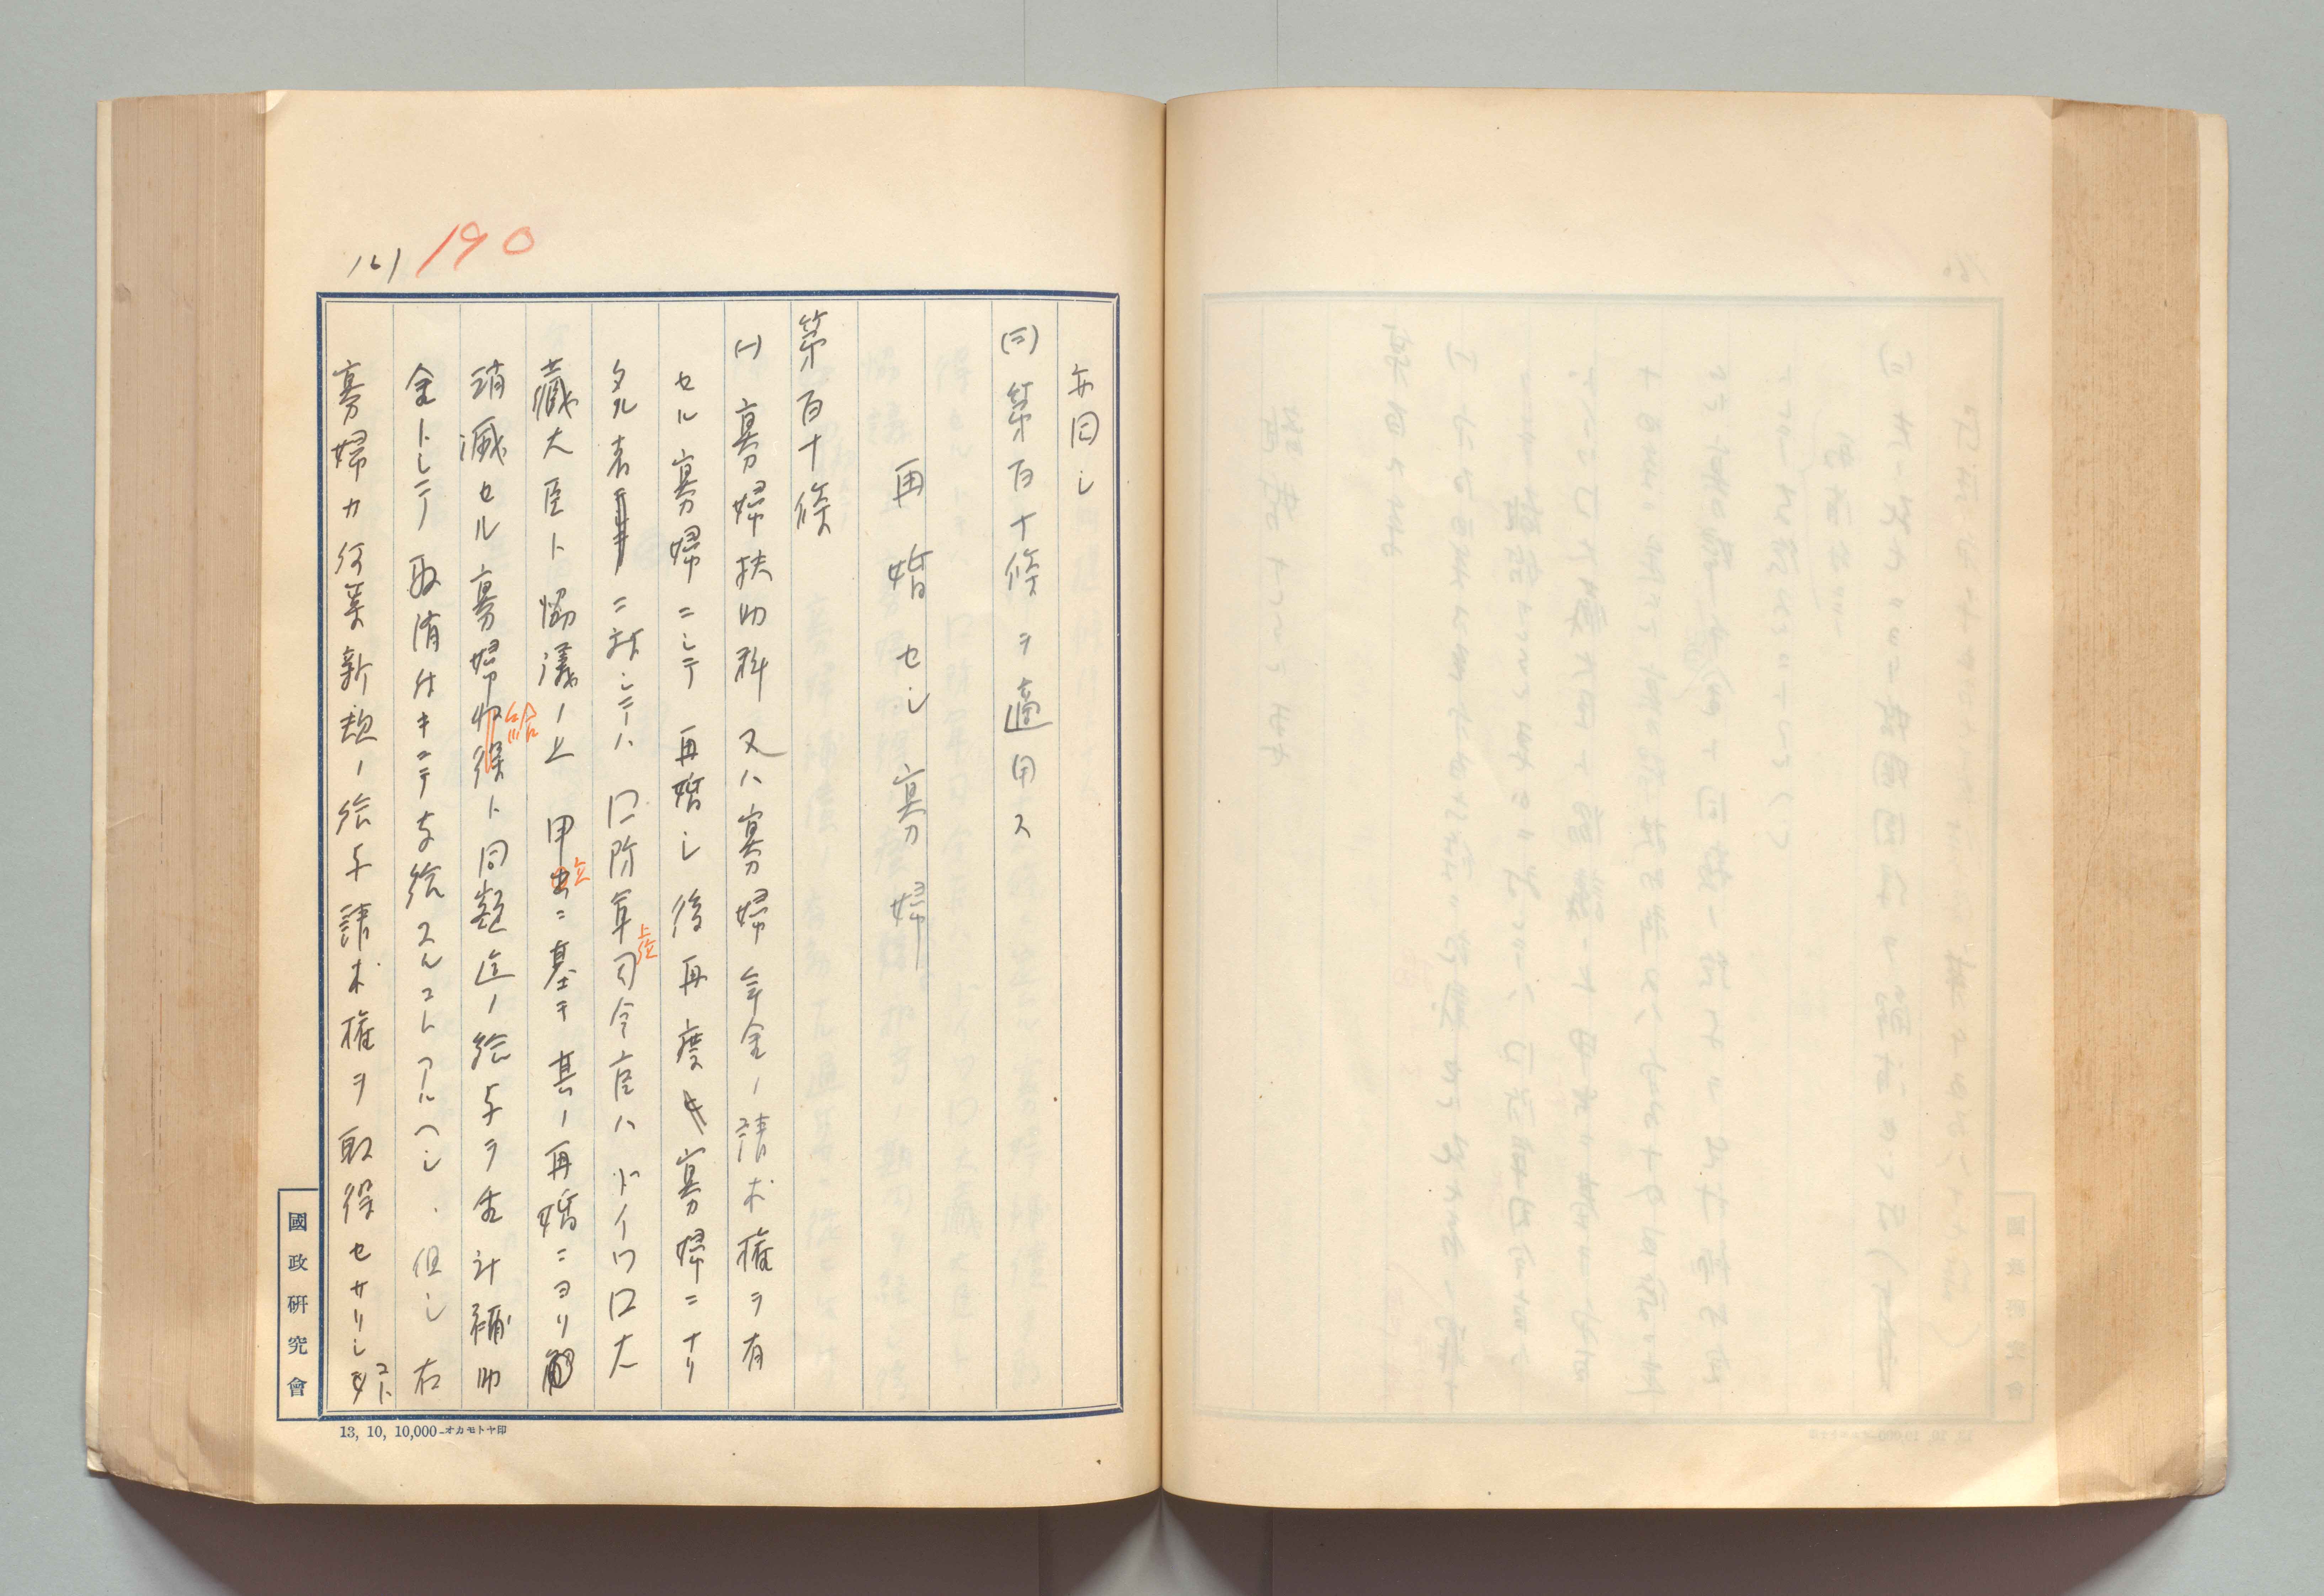 161 190
亦同シ
(三)第百十條ヲ適用ス
再婚セシ寡婦
第百十條
(一)寡婦扶助料又ハ寡婦年金ノ請求権ヲ有
セル寡婦ニシテ再婚シ後再度寡婦ニナリ
タル者ニ対シテハ口防軍司令官ハドイツ口大
上位
藏大臣ト協議ノ上甲ニ基キ其ノ再婚ニヨリ
立
消滅セル寡婦收得ト同額迄ノ給与ヲ生計補助
給
金トシテ取消付キニテ支給スルコトアルヘシ.但シ右
寡婦カ何等新規ノ給与請求権ヲ取得セサリシ
コト
國政研究會
13, 10, 10,000-オカモトヤ印